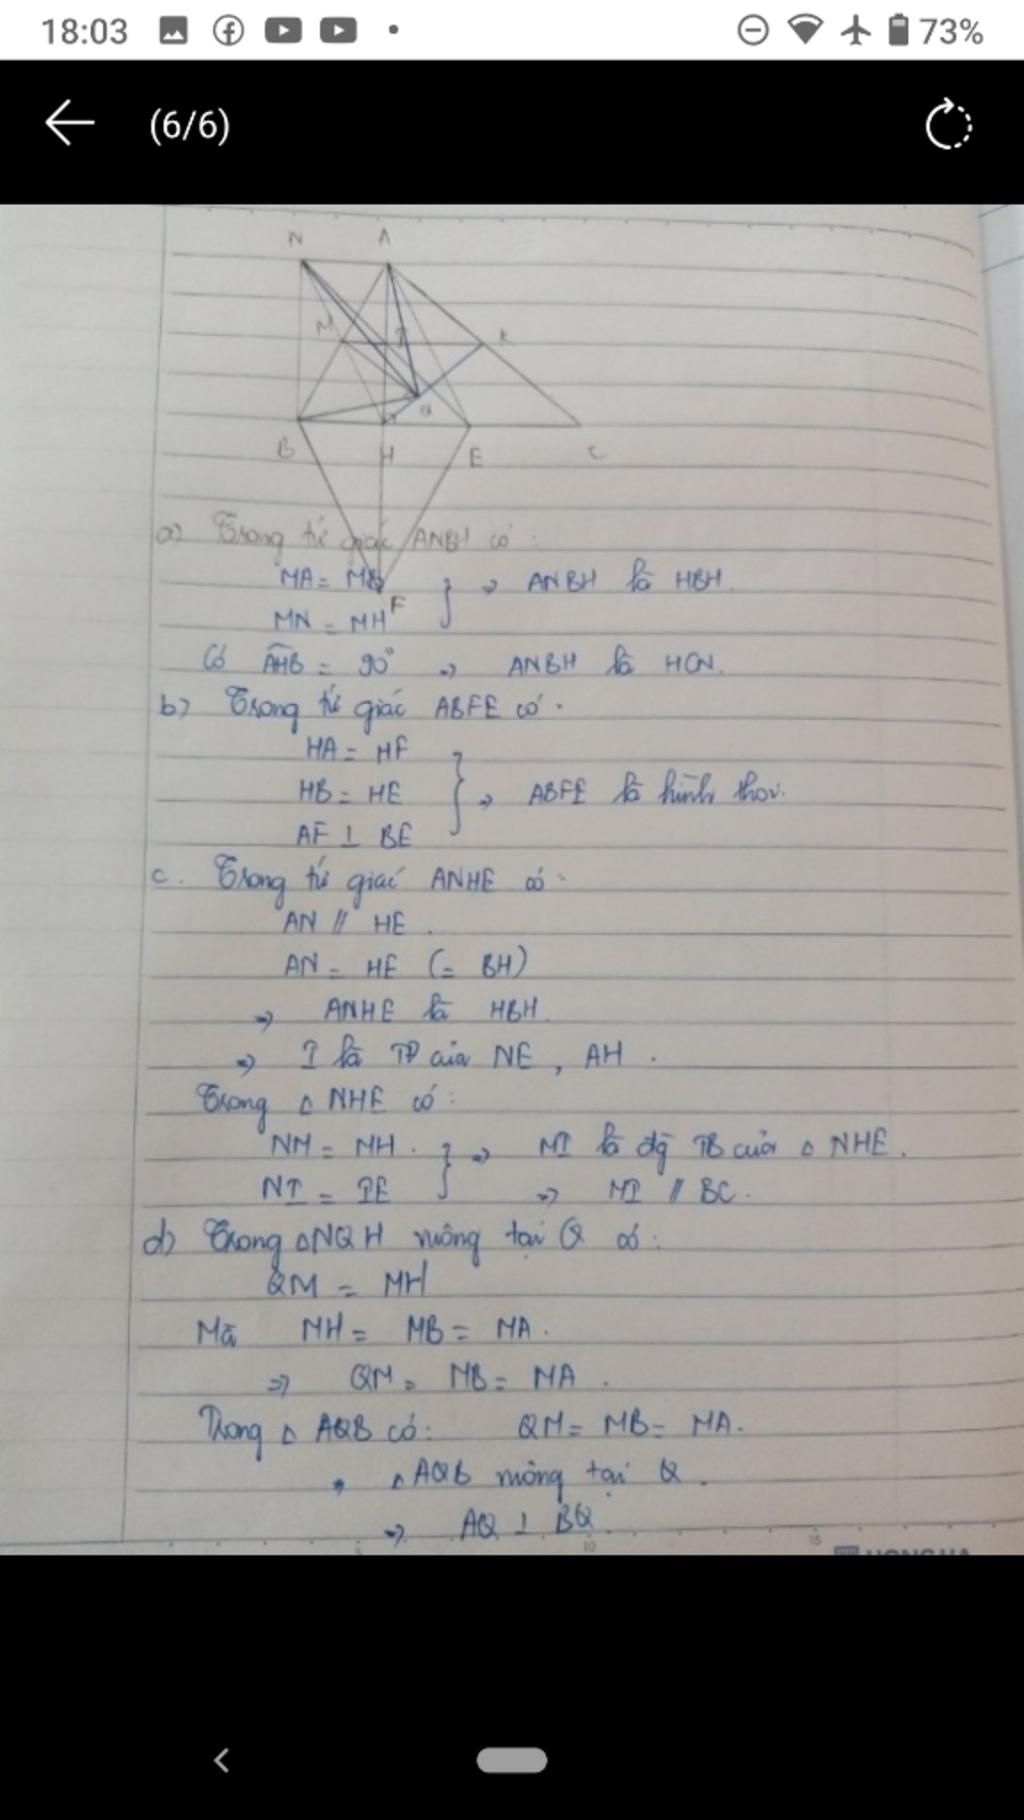 18:03
73%
(6/6)
N A
M I K
Q
B H E C
F
a) Trong tứ giác ANBH có:
MA = MB
MN = MH
} => ANBH là HBH.
Có AHB = 90° => ANBH là HCN.
b) Trong tứ giác ABFE có:
HA = HF
HB = HE
AF ⊥ BE
} => ABFE là hình thoi.
c. Trong tứ giác ANHE có:
AN // HE.
AN = HE (= BH)
=> ANHE là HBH.
=> I là TĐ của NE, AH.
Trong △ NHE có:
NM = MH.
NI = IE
} => MI là đg TB của △ NHE.
=> MI // BC.
d) Trong △NQH vuông tại Q có:
QM = MH
Mà MH = MB = MA.
=> QM = MB = MA.
Trong △ AQB có: QM = MB = MA.
=> △AQB vuông tại Q.
=> AQ ⊥ BQ.
5 10 15